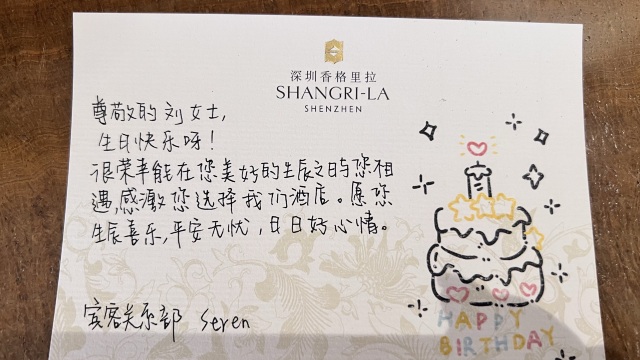 深圳香格里拉
SHANGRI-LA
SHENZHEN
尊敬的刘女士,
生日快乐呀!
很荣幸能在您美好的生辰之日与您相
遇,感激您选择我们酒店。愿您
生辰喜乐,平安无忧,日日好心情。
宾客关系部 Seren
HAPPY
BIRTHDAY